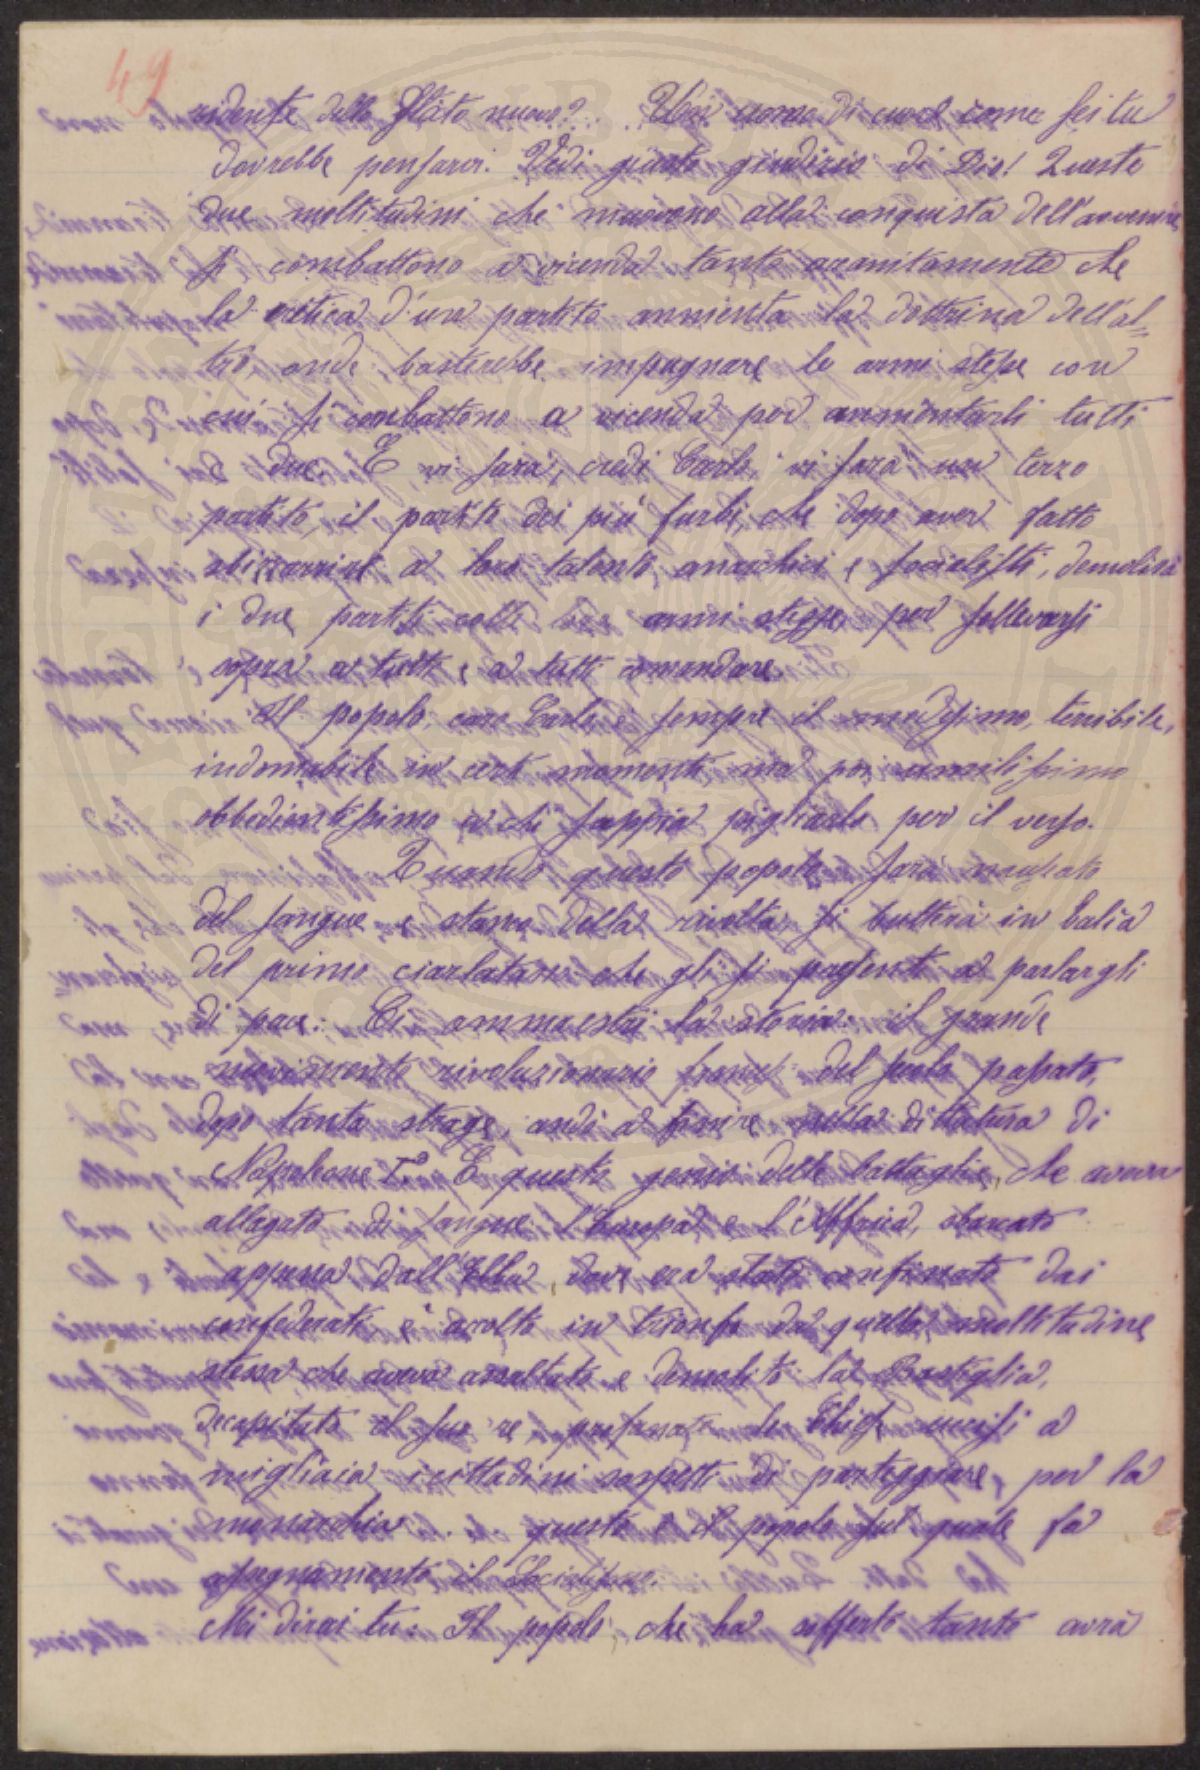 49
ridente dello Stato nuovo? . . Un uomo di cuore come sei tu
dovrebbe pensarci. Vedi giusto giudizio di Dio! Queste
due moltitudini che muovono alla conquista dell'avvenire
si combattono a vicenda tanto accanitamente che
la critica d'un partito annienta la dottrina dell'al=
tro, onde basterebbe impugnare le armi stesse con
cui si combattono a vicenda per annientarli tutti
e due. E vi sarà, credi Carlo, vi sarà un terzo
partito, il partito dei più furbi, che dopo aver fatto
sbizzarrire a loro talento anarchici e socialisti, demolirà
i due partiti colle loro armi stesse per sollevarsi
sopra a tutti e a tutti comandare.
Il popolo, caro Carlo, è sempre il medesimo, terribile,
indomabile in certi momenti, ma poi umilissimo
obbedientissimo a chi sappia pigliarlo per il verso.
Quando questo popolo sarà nauseato
del sangue e stanco della rivolta, si butterà in balìa
del primo ciarlatano che gli si presenti a parlargli
di pace. Ci ammaestri la storia: il grande
movimento rivoluzionario francese del secolo passato,
dopo tanta strage, andò a finire nella dittatura di
Napoleone I.º E questo genio delle battaglie, che aveva
allagato di sangue l'Europa e l'Affrica, sbarcato
appena dall'Elba, dove era stato confinato dai
confederati, è accolto in trionfo da quella moltitudine
stessa che aveva assaltato e demolito la Bastiglia,
decapitato il suo re, profanate le Chiese, uccisi a
migliaia i cittadini sospetti di parteggiare per la
monarchia . . questo è il popolo sul quale fa
assegnamento il Socialismo.
Mi dirai tu: Il popolo, che ha sofferto tanto avrà